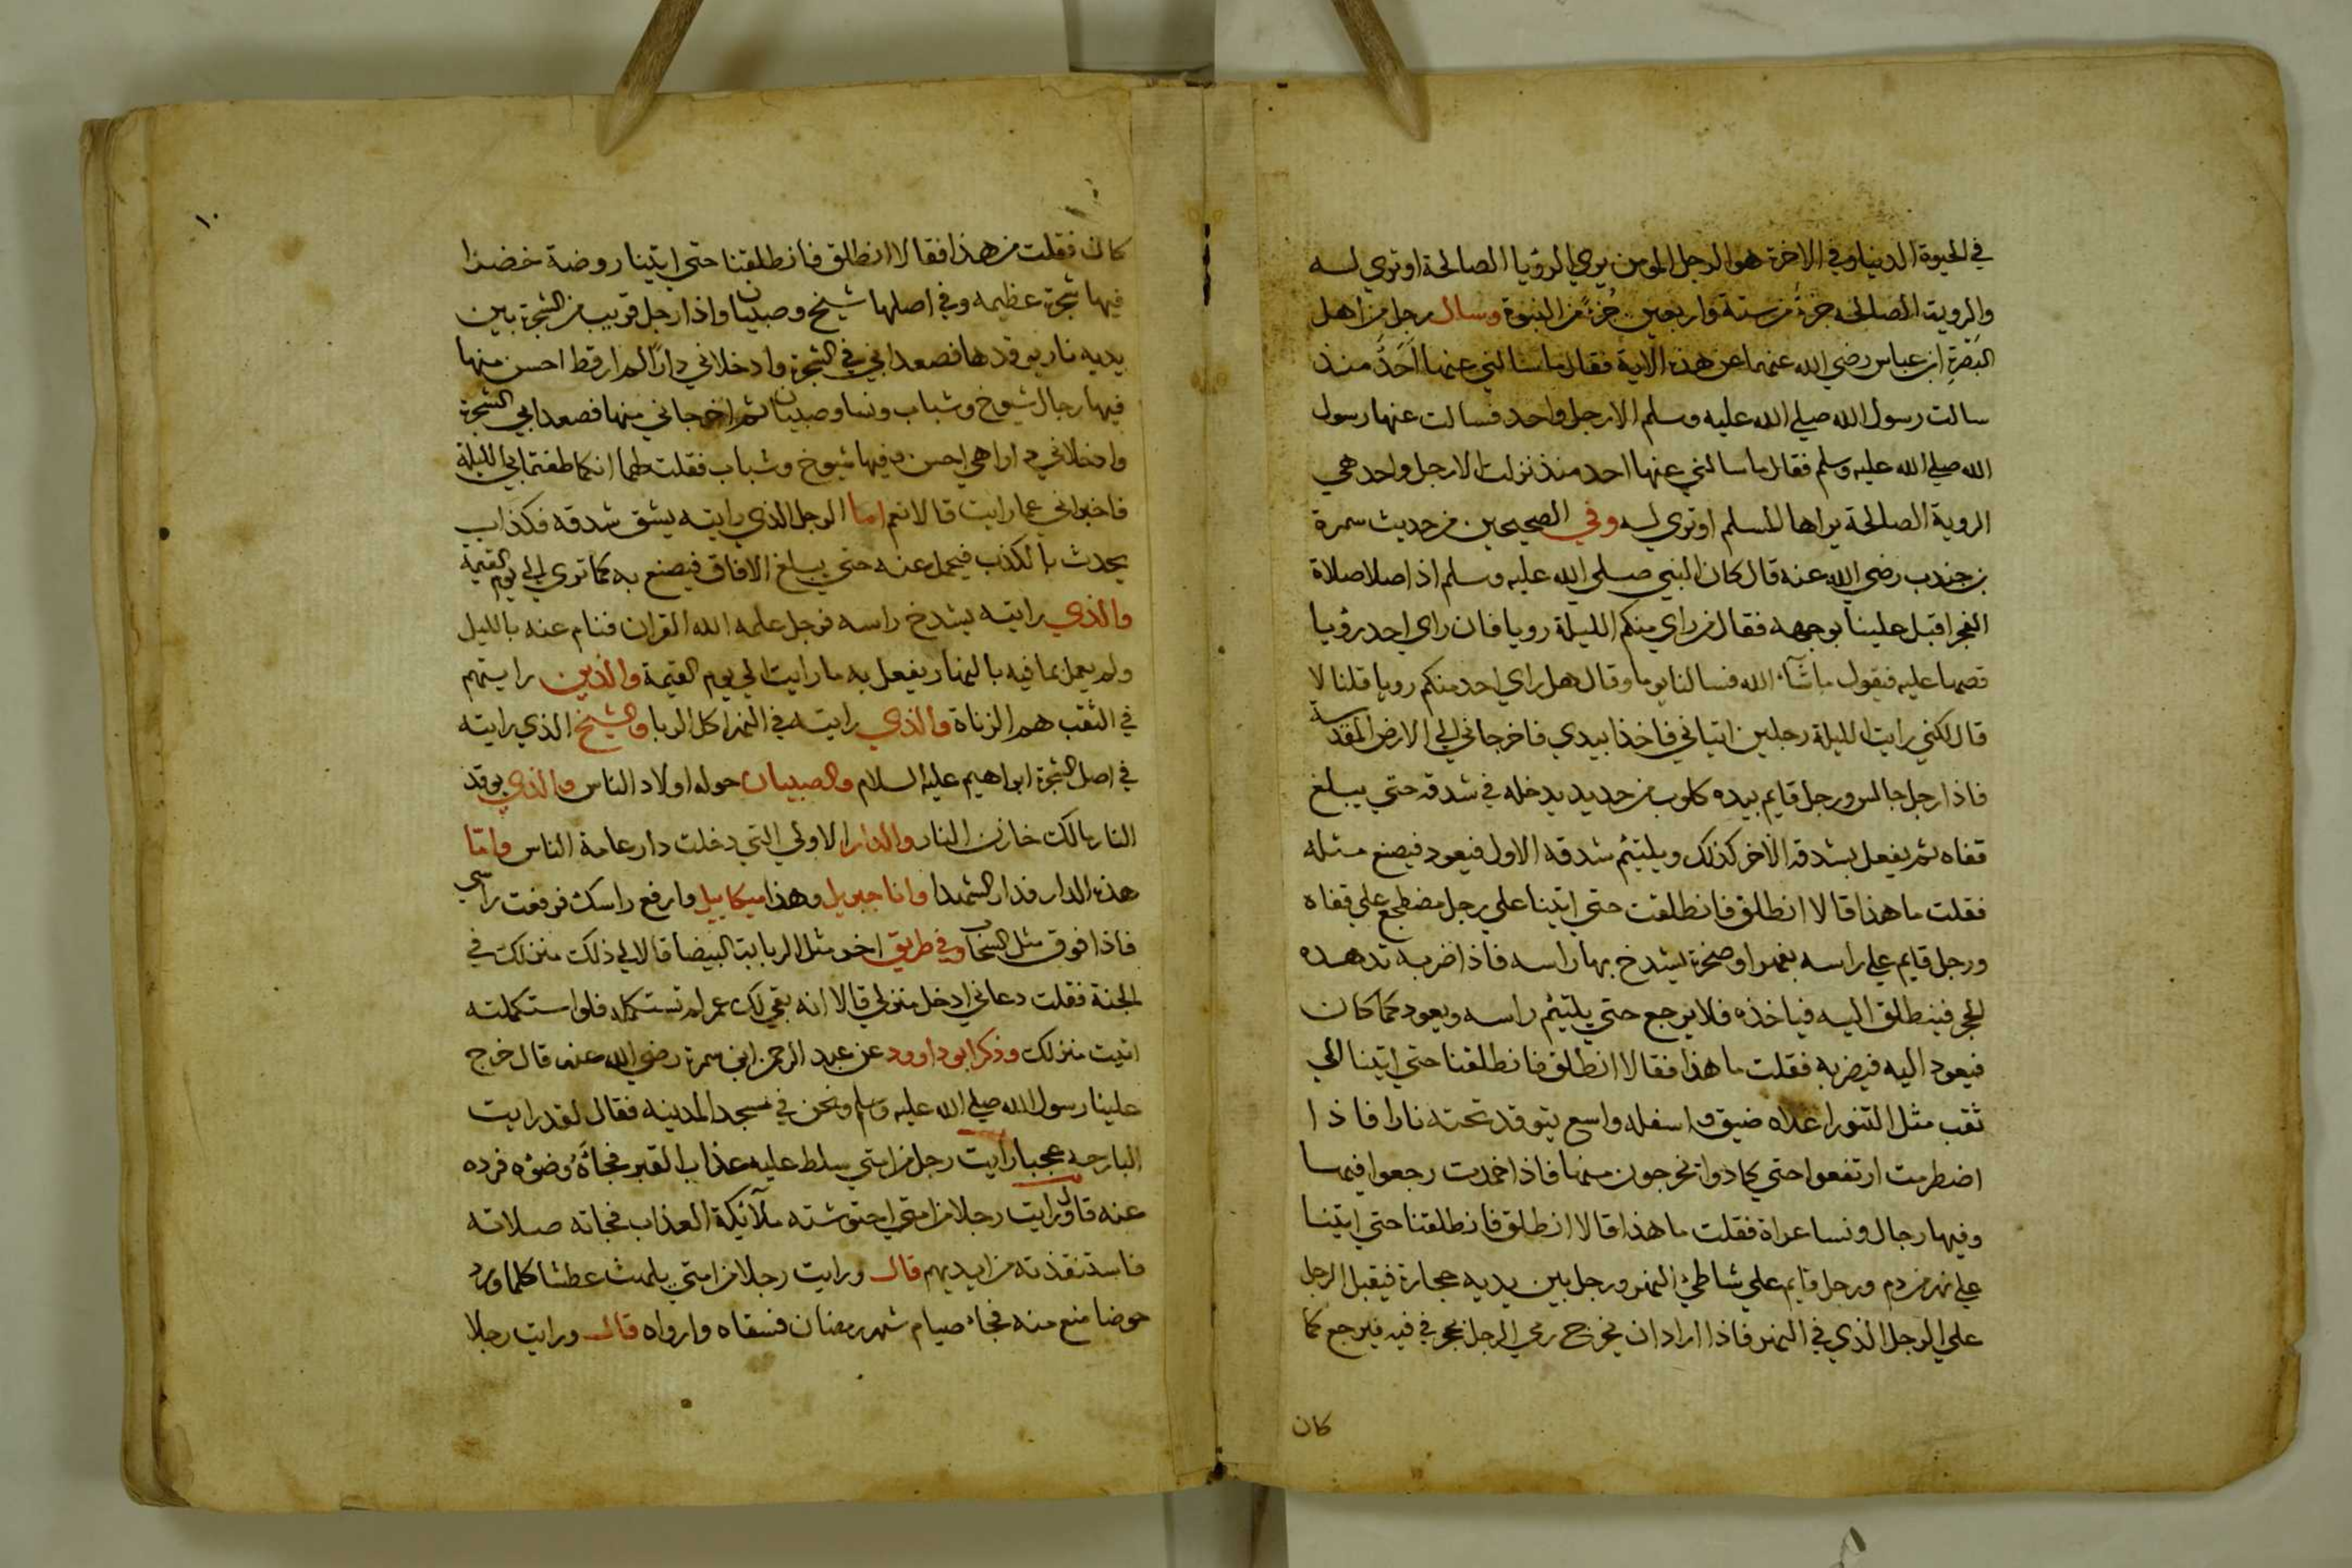 في الحيوة الدنيا وفي الاخرة هو الرجل المومن يري الرؤيا الصالحة او تري له
والروية الصالحه جزءٌ من ستة واربعين جزءً من النبوة وسال رجل من اهل
البَصَرةِ ابن عباس رضي الله عنهما عن هذه الاية فقال ما سالني عنها اَحَدٌ منذ
سالت رسول الله صلي الله عليه وسلم الا رجل واحد فسالت عنها رسول
الله صلي الله عليه وسلم فقال ما سالني عنها احد منذ نزلت الا رجل واحد هي
الروية الصالحة يراها المسلم او تري له وفي الصحيحين من حديث سمرة
بن جندب رضي الله عنه قال كان النبي صلي الله عليه وسلم اذا صلا صلاة
الفجر اقبل علينا بوجهه فقال من راي منكم الليلة رويا فان راي احد رؤيا
قصها عليه فيقول ما شآء الله فسالنا يوما وقال هل راي احد منكم رويا قلنا لا
قال لكني رايت الليلة رجلين اتياني فاخذا بيدي فاخرجاني الي الارض المقدسة
فاذا رجل جالس ورجل قايم بيده كلوب من حديد يدخله في شدقه حتي يبلغ
قفاه ثم يفعل بشدقه الآخر كذلك ويلتيئم شدقه الاول فيعود فيصنع مثله
فقلت ما هذا قالا انطلق فانطلقت حتي اتينا علي رجل مضطجع علي قفاه
ورجل قايم علي راسه بفهر او صخرة يشدخ بها راسه فاذا ضربه تدهده
الحجر فينطلق اليه فياخذه فلا يرجع حتي يلتيئم راسه ويعود كما كان
فيعود اليه فيضربه فقلت ما هذا فقالا انطلق فانطلقنا حتي اتينا الي
ثقب مثل التنور اعلاه ضيق واسفله واسع يتوقد تحته نارا فاذا
اضطرمت ارتفعوا حتي كادوا تخرجون منها فاذا خمدت رجعوا فيها
وفيها رجال ونسا عراة فقلت ما هذا قالا انطلق فانطلقنا حتي اتينا
علي نهر من دم ورجل قايم علي شاطئ النهر ورجل بين يديه حجارة فيقبل الرجل
علي الرجل الذي في النهر فاذا اراد ان يخرج رمي الرجل بحجر في فيه فيرجع كما
كان
١٠
كان فقلت من هذا فقالا انطلق فانطلقنا حتي اتينا روضة خضرا
فيها شجرة عظيمه وفي اصلها شيخ وصبيان واذا رجل قريب من الشجرة بين
يديه نار يوقدها فصعدا بي في الشجرة وادخلاني دارًا لم ار قط احسن منها
فيها رجال شيوخ وشباب ونسا وصبيان ثم اخرجاني منها فصعدا بي الشجرة
وادخلاني دارا هي احسن فيها شيوخ وشباب فقلت لهما انكما طفتما بي الليلة
فاخبراني عما رايت قالا نعم اما الرجل الذي رايته يشق شدقه فكذاب
يحدث بالكذب فيحمل عنه حتي يبلغ الافاق فيصنع به كما تري الي يوم القيمة
والذي رايته يشدخ راسه فرجل علمه الله القران فنام عنه بالليل
ولم يعمل بما فيه بالنهار يفعل به ما رايت الي يوم القيمة والذين رايتهم
في الثقب هم الزناة والذي رايته في النهر اكل الربا والشيخ الذي رايته
في اصل الشجرة ابراهيم عليه السلام والصبيان حوله اولاد الناس والذي يوقد
النار مالك خازن النار والدار الاولي التي دخلت دار عامة الناس وامّا
هذه الدار فدار الشهدا وانا جبريل وهذا ميكاييل وارفع راسك فرفعت راسي
فاذا فوقي مثل السحاب وفي طريق اخر مثل الربابة البيضا قالا لي ذلك منزلك في
الجنة فقلت دعاني ادخل منزلي قالا انه بقي لك عمر لم تستكمله فلو استكملته
اتيت منزلك وذكر ابو داوود عن عبد الرحمن ابن سمرة رضي الله عنه قال خرج
علينا رسول الله صلي الله عليه وسلم ونحن في مسجد المدينه فقال لقد رايت
البارحه عجبا رايت رجل من امتي سلط عليه عذاب القبر فجآءَهُ وضؤه فرده
عنه قال ورايت رجلا من امتي احتوشته ملآئكة العذاب فجاته صلاته
فاستنقذته من ايديهم قال ورايت رجلا من امتي يلهث عطشا كلما ورد
حوضا منع منه فجاء صيام شهر رمضان فسقاه وارواه قال ورايت رجلا